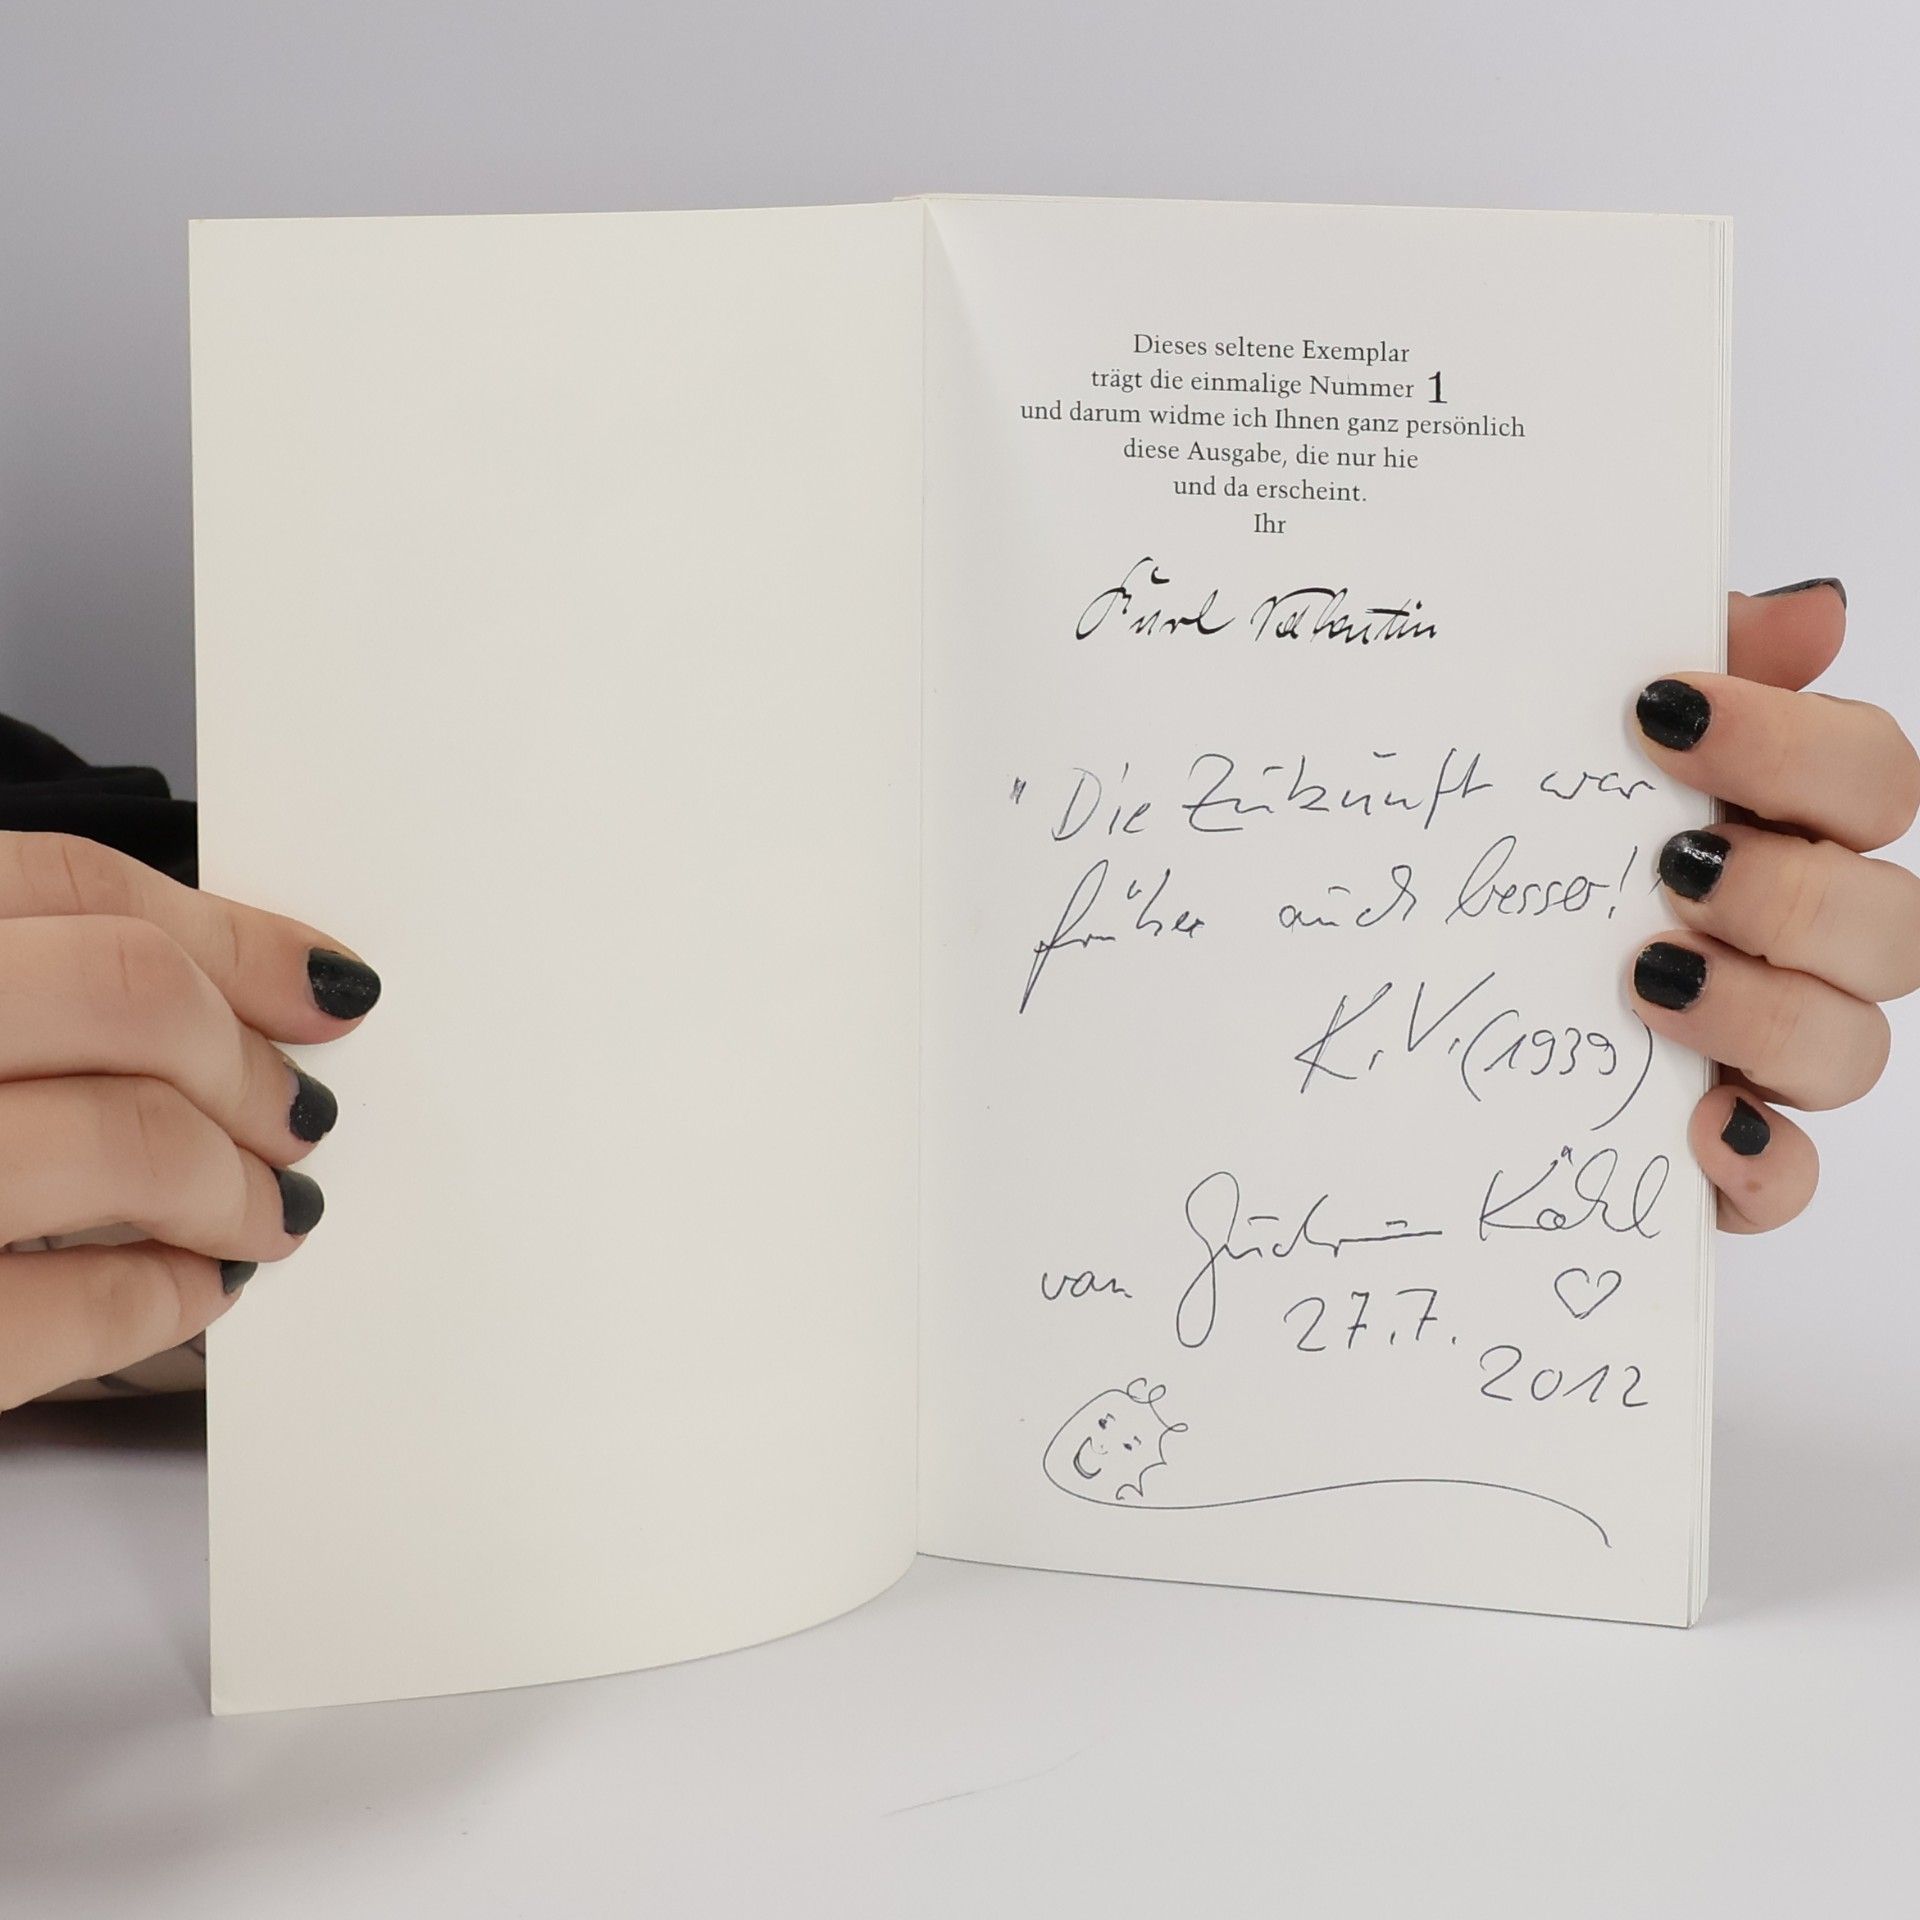 Dieses seltene Exemplar
trägt die einmalige Nummer 1
und darum widme ich Ihnen ganz persönlich
diese Ausgabe, die nur hie
und da erscheint.
Ihr
Karl Valentin
"Die Zukunft war
früher auch besser!"
K. V. (1939)
von Gudrun Köhl
27.7. ♡
2012